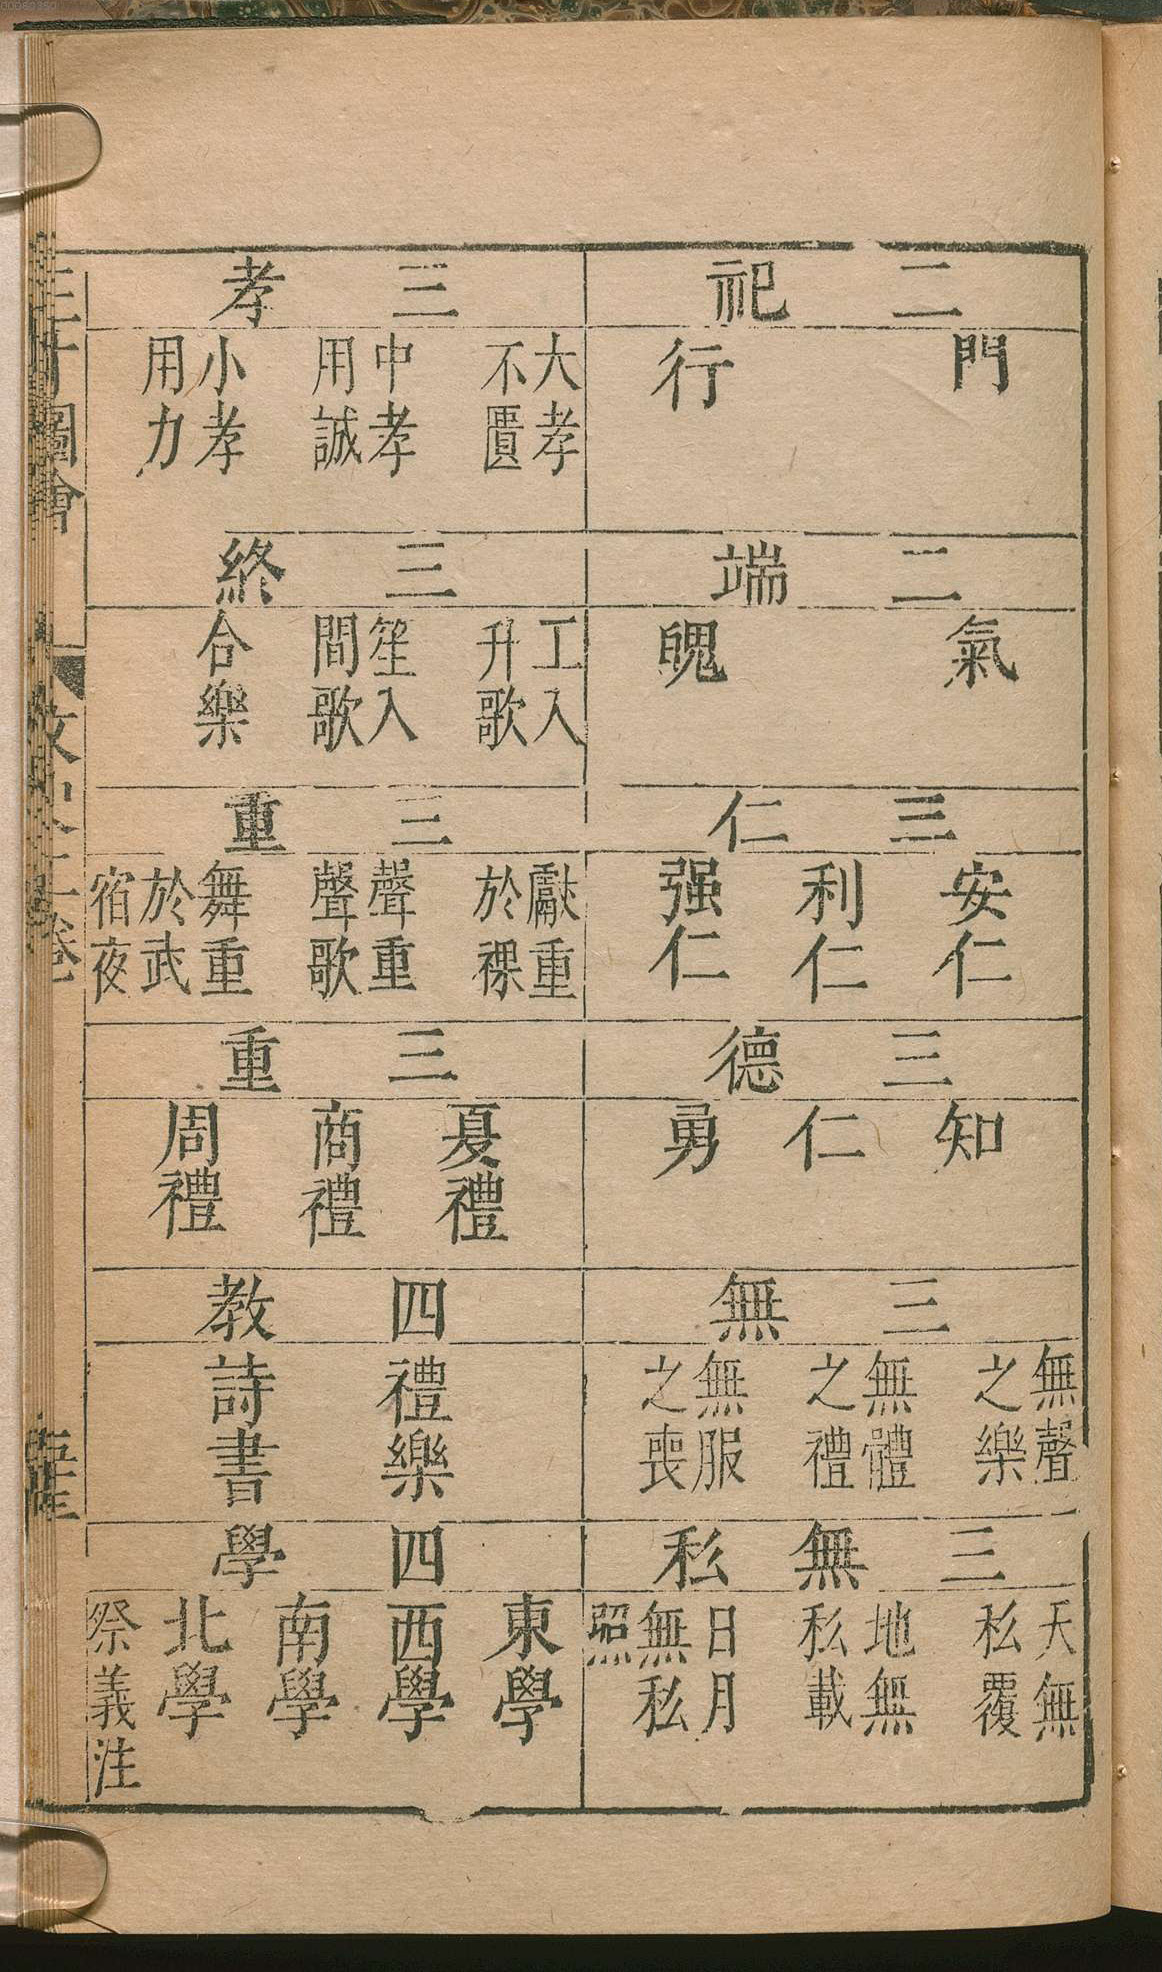 二祀
門
行
二端
氣
魄
三仁
安仁
利仁
强仁
三德
知
仁
勇
三無
無聲
之樂
無體
之禮
無服
之喪
三無私
天無
私覆
地無
私載
日月
無私
照
三孝
大孝
不匱
中孝
用誠
小孝
用力
三終
工入
升歌
笙入
間歌
合樂
三重
獻重
於祼
聲重
聲歌
舞重
於武
宿夜
三重
夏禮
商禮
周禮
四教
禮樂
詩書
四學
東學
西學
南學
北學
祭義注
圖會